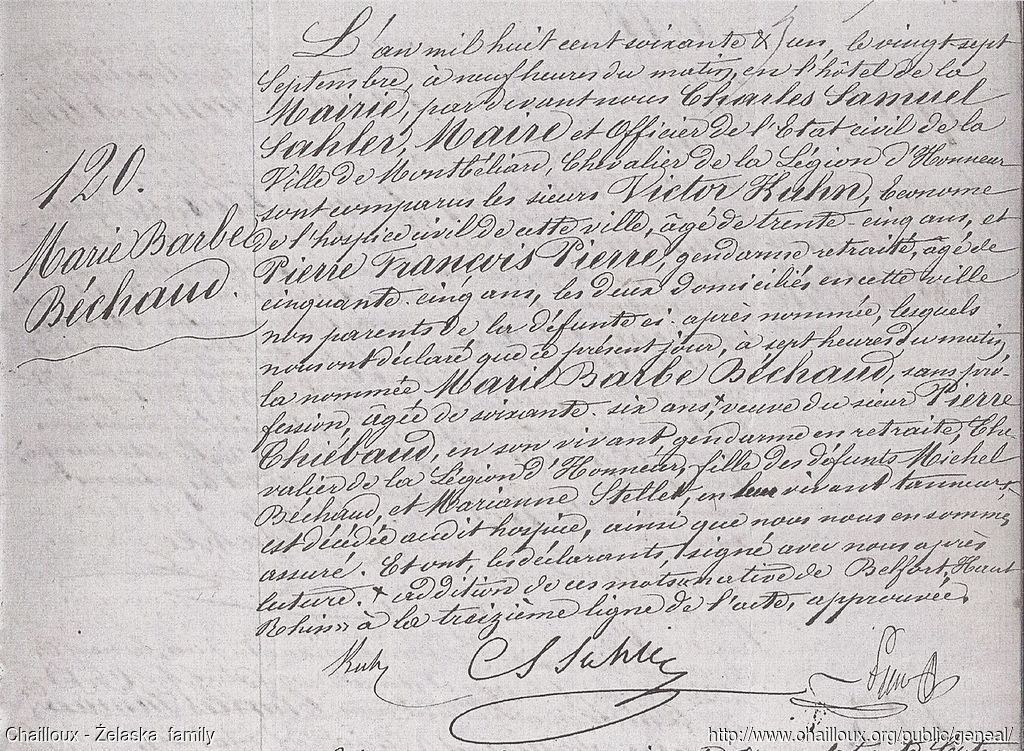 120.
Marie Barbe
Béchaud.
L'an mil huit cent soixante & un, le vingt sept
Septembre, à neuf heures du matin, en l'hôtel de la
Mairie, par devant nous Charles Samuel
Sahler, Maire et Officier de l'Etat civil de la
Ville de Montbéliard, Chevalier de la Légion d'Honneur
sont comparus les sieurs Victor Kuhn, Econome
de l'hospice civil de cette ville, âgé de trente-cinq ans, et
Pierre François Pierre, gendarme retraité, âgé de
cinquante-cinq ans, les deux domiciliés en cette ville
non parents de la défunte ci-après nommée, lesquels
nous ont déclaré que ce présent jour, à sept heures du matin,
la nommée, Marie Barbe Béchaud, sans pro-
fession, âgée de soixante-six ans, + veuve du sieur Pierre
Thiébaud, en son vivant gendarme en retraite, Che-
valier de la Légion d'Honneur, fille des défunts Michel
Béchaud, et Marianne Steller, en leur vivant tanneurs,
est décédée au dit hospice, ainsi que nous nous en sommes
assuré. Et ont, les déclarants, signé avec nous après
lecture. + addition de ces mots "native de Belfort, Haut
Rhin" à la treizième ligne de l'acte, approuvée.
Kuhn
CS Sahler
Chailloux - Żelaska family
http://www.chailloux.org/public/geneal/